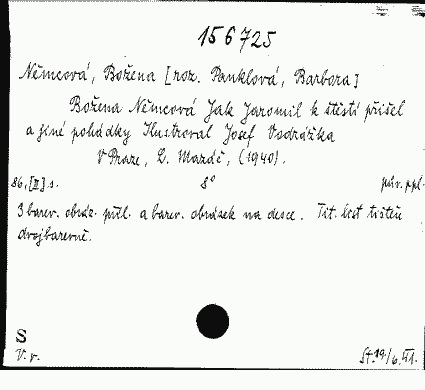 156725
Němcová, Božena [roz. Panklová, Barbora]
Božena Němcová Jak Jaromil k štěstí přišel
a jiné pohádky Ilustroval Josef Vodrážka
V Praze, L. Mazáč, (1940).
86, [II] s. 8° pův. ppl.
3 barev. obráz. příl. a barev. obrázek na desce. Tit. list tištěn
dvojbarevně.
S
V. r. St. 19/6. 41.